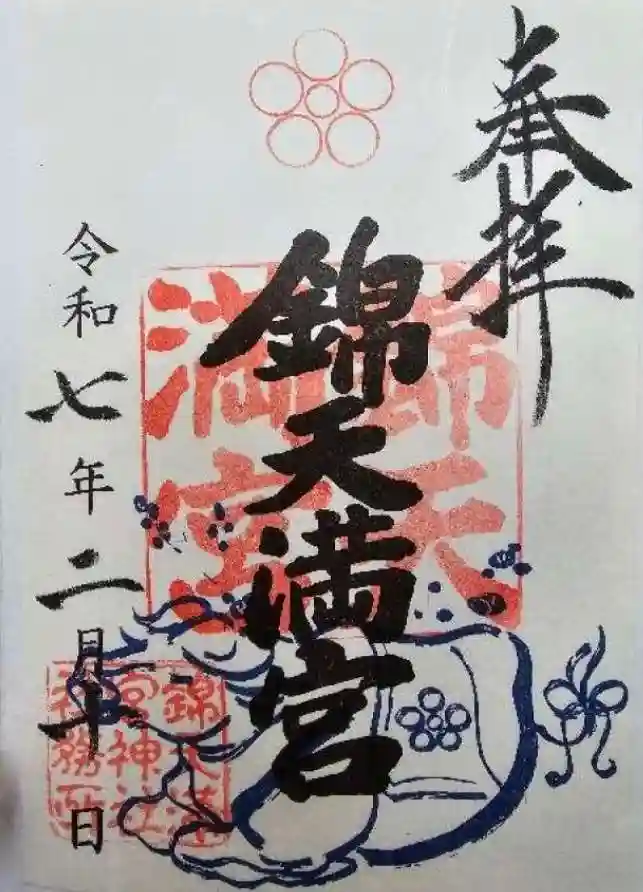 奉拝
錦天満宮
錦天満宮
令和七年二月十日
錦天満
宮神社
社務所